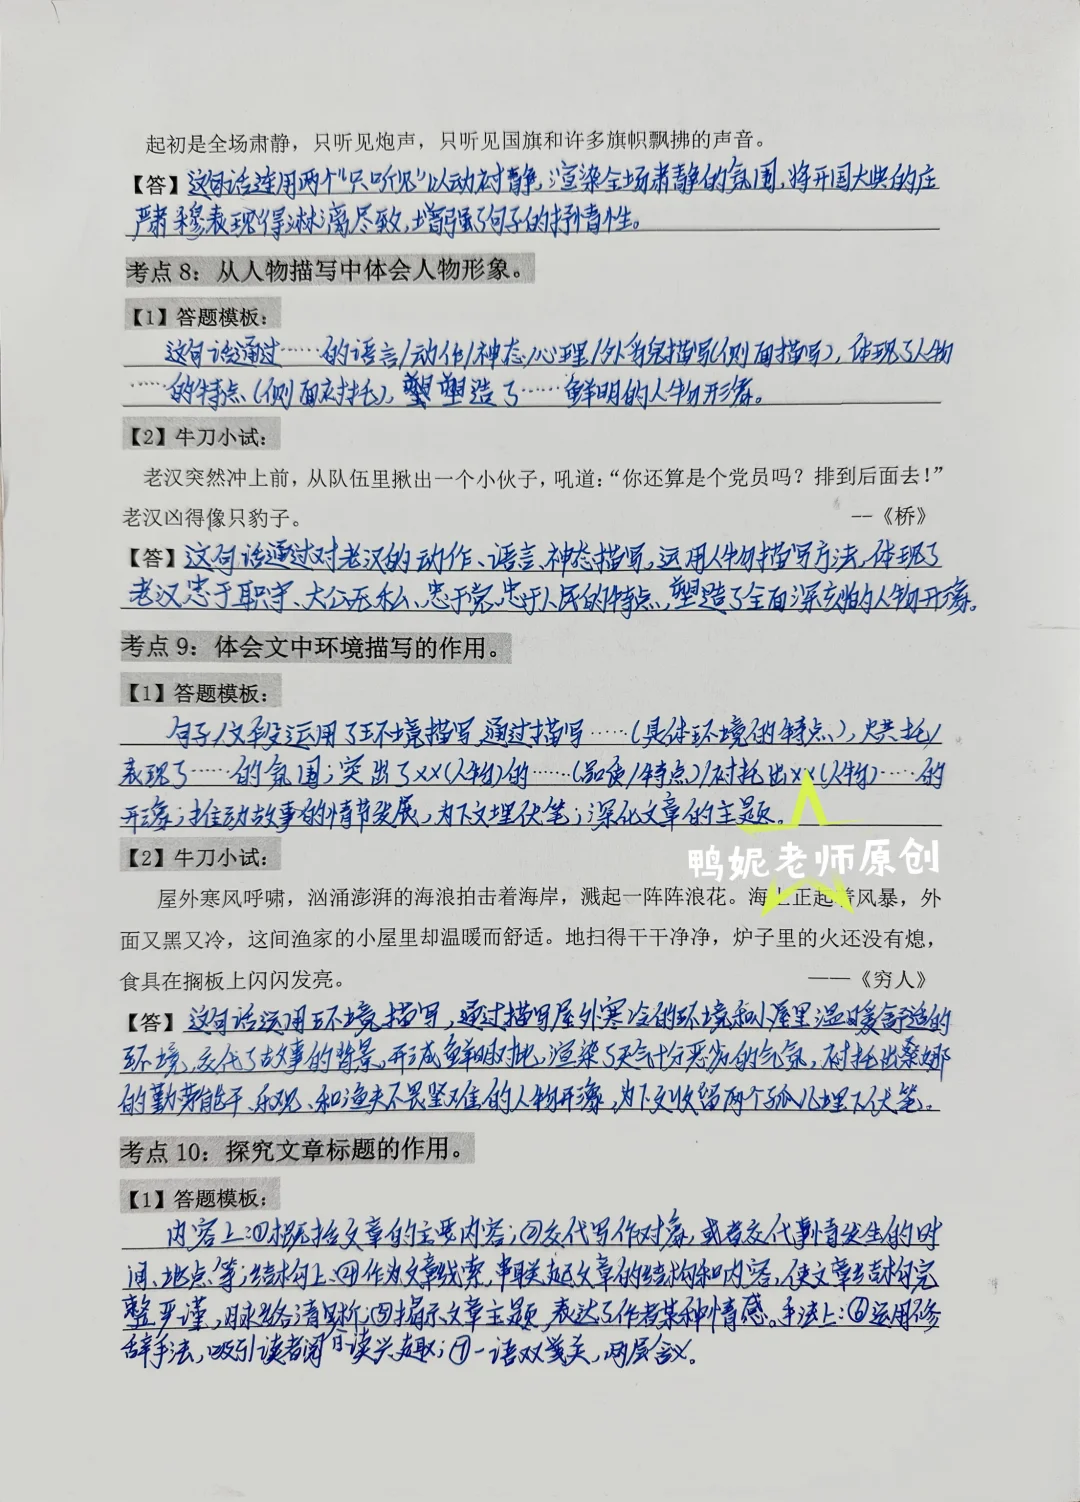 起初是全场肃静，只听见炮声，只听见国旗和许多旗帜飘拂的声音。
【答】这句话连用两个“只听见”以动衬静，渲染全场肃静的氛围，将开国大典的庄
严肃穆表现得淋漓尽致，增强了句子的抒情性。
考点 8：从人物描写中体会人物形象。
【1】答题模板：
这句话通过……的语言/动作/神态/心理/外貌描写(侧面描写)，体现了人物
……的特点(侧面衬托)，塑造了……鲜明的人物形象。
【2】牛刀小试：
老汉突然冲上前，从队伍里揪出一个小伙子，吼道：“你还算是个党员吗？排到后面去！”
老汉凶得像只豹子。 --《桥》
【答】这句话通过对老汉的动作、语言、神态描写，运用人物描写方法，体现了
老汉忠于职守、大公无私、忠于党、忠于人民的特点，塑造了全面深刻的人物形象。
考点 9：体会文中环境描写的作用。
【1】答题模板：
句子/文段运用了环境描写，通过描写……(具体环境的特点)，烘托/
表现了……的氛围；突出了××(人物)的……(品质/特点)/衬托出××(人物)……的
形象；推动故事的情节发展，为下文埋伏笔；深化文章的主题。
鸭妮老师原创
【2】牛刀小试：
屋外寒风呼啸，汹涌澎湃的海浪拍击着海岸，溅起一阵阵浪花。海上正起着风暴，外
面又黑又冷，这间渔家的小屋里却温暖而舒适。地扫得干干净净，炉子里的火还没有熄，
食具在搁板上闪闪发亮。 ——《穷人》
【答】这句话运用环境描写，通过描写屋外寒冷的环境和小屋里温暖舒适的
环境，交代了故事的背景，形成鲜明对比，渲染了天气十分恶劣的气氛，衬托出桑娜
的勤劳能干、乐观、和渔夫不畏坚难的人物形象，为下文收留两个孤儿埋下伏笔。
考点 10：探究文章标题的作用。
【1】答题模板：
内容上：①概括文章的主要内容；②交代写作对象，或者交代事情发生的时
间、地点等；结构上：④作为文章线索，串联起文章的结构和内容，使文章结构完
整严谨，脉络清晰；⑤揭示文章主题，表达了作者某种情感。手法上：⑥运用修
辞手法，吸引读者阅读兴趣；⑦一语双关，两层含义。